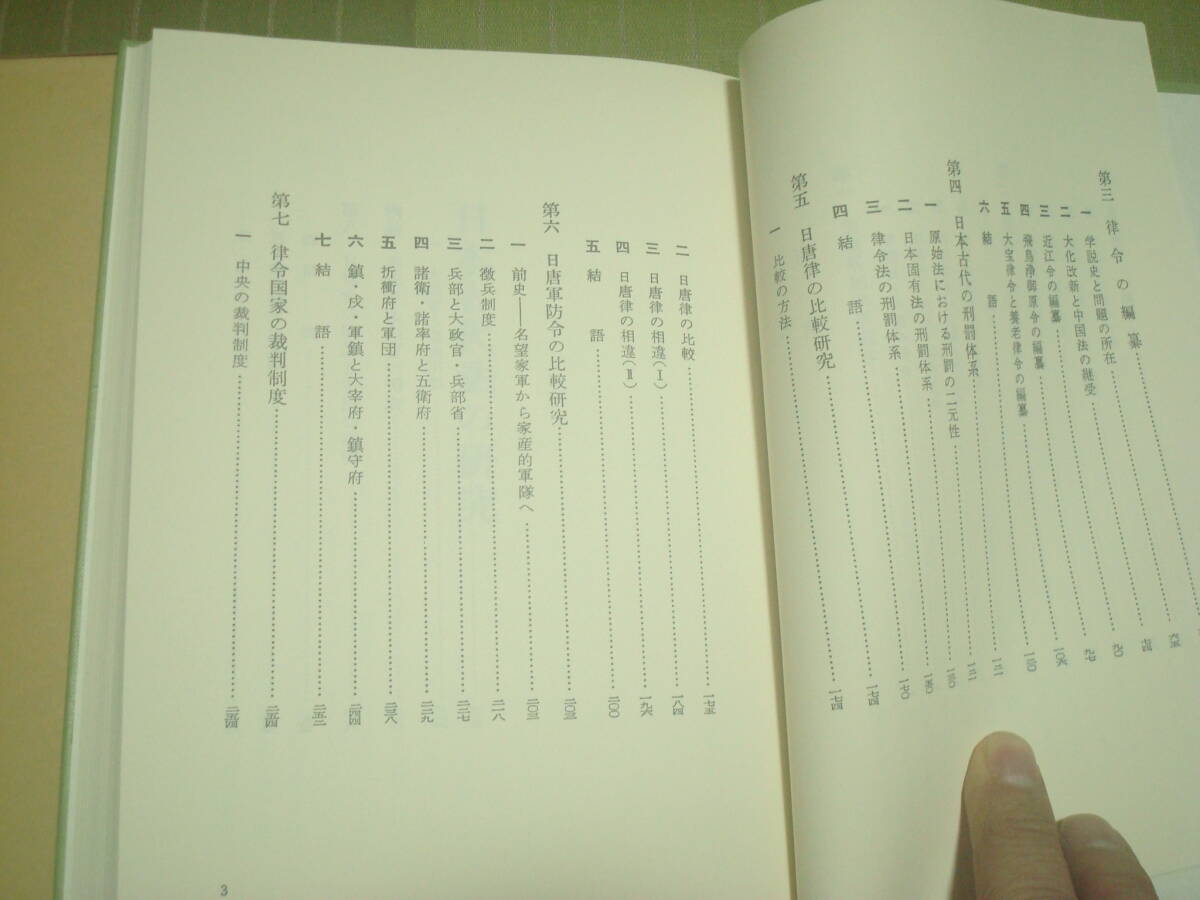 第三 律令の編纂
一 学説史と問題の所在
二 大化改新と中国法の継受 九〇
三 近江令の編纂 九七
四 飛鳥浄御原令の編纂 一〇六
五 大宝律令と養老律令の編纂
六 結語
第四 日本古代の刑罰体系
一 原始法における刑罰の二元性
二 日本固有法の刑罰体系
三 律令法の刑罰体系 一五〇
四 結語 一七〇
第五 日唐律の比較研究 一七四
一 比較の方法 一七四
二 日唐律の比較 一七五
三 日唐律の相違(Ⅰ) 一八四
四 日唐律の相違(Ⅱ) 一九六
五 結語 二〇〇
第六 日唐軍防令の比較研究 二〇三
一 前史——名望家軍から家産的軍隊へ 二〇三
二 徴兵制度 二一八
三 兵部と大政官・兵部省 二二七
四 諸衛・諸率府と五衛府 二二九
五 折衝府と軍団 二三八
六 鎮・戍・軍鎮と大宰府・鎮守府 二四四
七 結語 二五三
第七 律令国家の裁判制度 二五四
一 中央の裁判制度 二五四
3